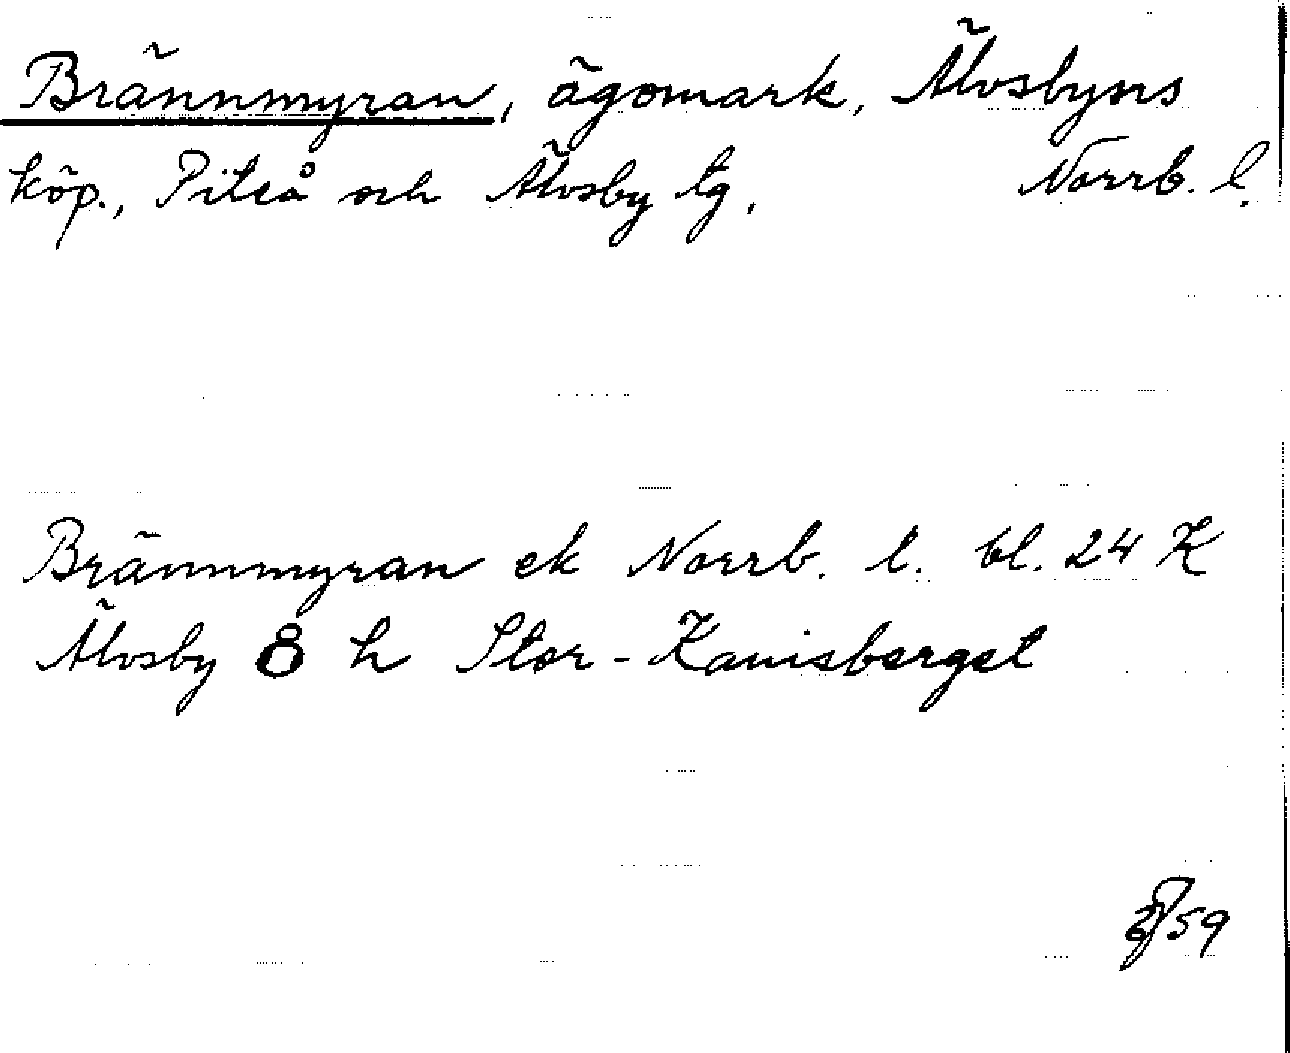 Brännmyran, ägomark, Älvsbyns
köp., Piteå och Älvsby tg, Norrb. l.
Brännmyran ek Norrb. l. bl. 24 K
Älvsby 8 h Stor-Kanisberget
59